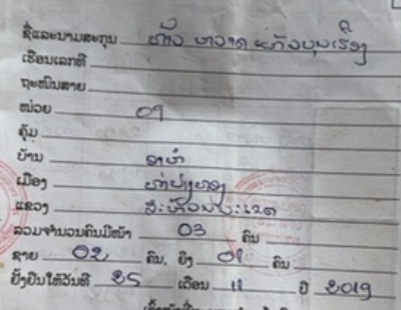 ຊື່ແລະນາມສະກຸນ ທ້າວ ຫວາດ ແກ້ວບຸນເຮືອງ
ເຮືອນເລກທີ
ຖະໜົນສາຍ
ໜ່ວຍ 09
ຄຸ້ມ
ບ້ານ
ເມືອງ
ແຂວງ ສະຫວັນນະເຂດ
ລວມຈຳນວນຄົນມີໜ້າ 03 ຄົນ
ຊາຍ 02 ຄົນ, ຍິງ 01 ຄົນ
ຢັ້ງຢືນໃຫ້ວັນທີ 25 ເດືອນ 11 ປີ 2019